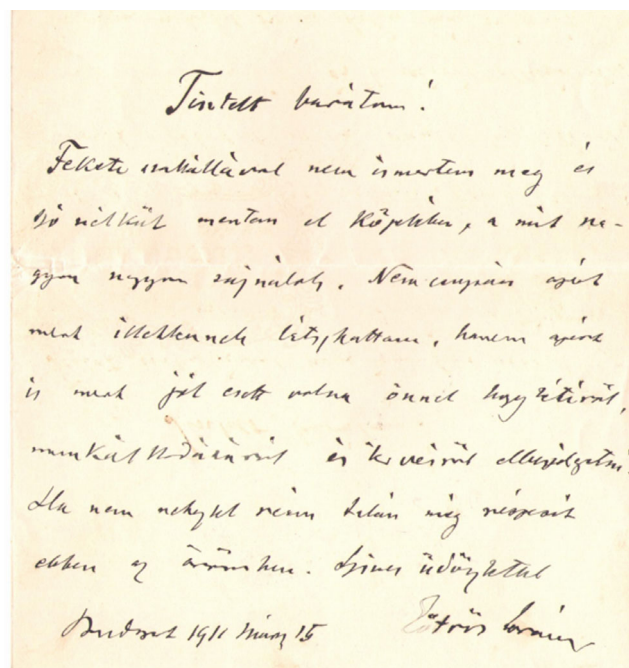 Tisztelt barátom!
Fekete szakállával nem ismertem meg és
szó nélkül mentem el Ön mellett, a mit na-
gyon nagyon sajnálok. Nem csupán azért
mert illetlennek látszhattam, hanem azért
is mert jól esett volna önnel hogylétéről,
munkálkodásáról és terveiről elbeszélgetni.
Ha nem neheztel reám talán még részesít
ebben az örömben. Szives üdvözlettel
Budapest 1911 márcz 15 Eötvös Loránd